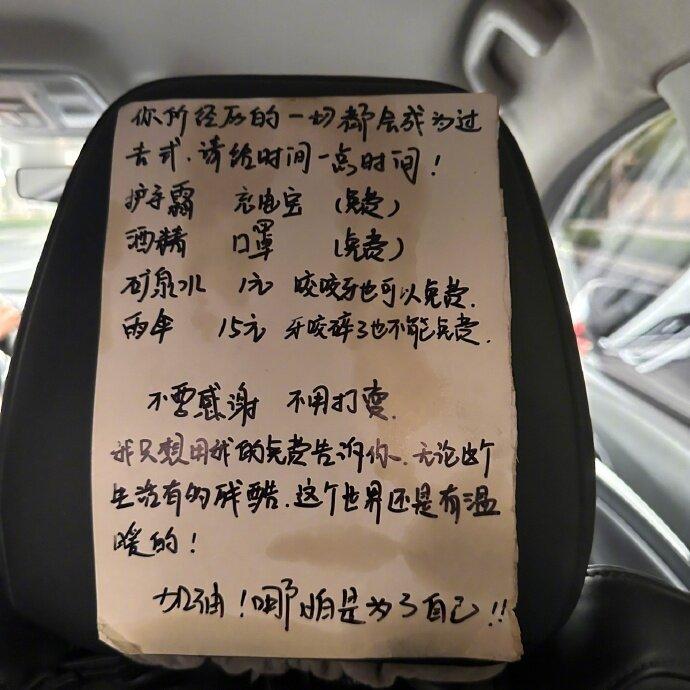 你所经历的一切都会成为过
去式、请给时间一点时间!
护手霜 充电宝 (免费)
酒精 口罩 (免费)
矿泉水 1元 咬咬牙也可以免费.
雨伞 15元 牙咬碎了也不能免费.
不要感谢 不用打赏.
我只想用我的免费告诉你、无论这个
生活有的残酷、这个世界还是有温
暖的!
加油!哪怕是为了自己!!